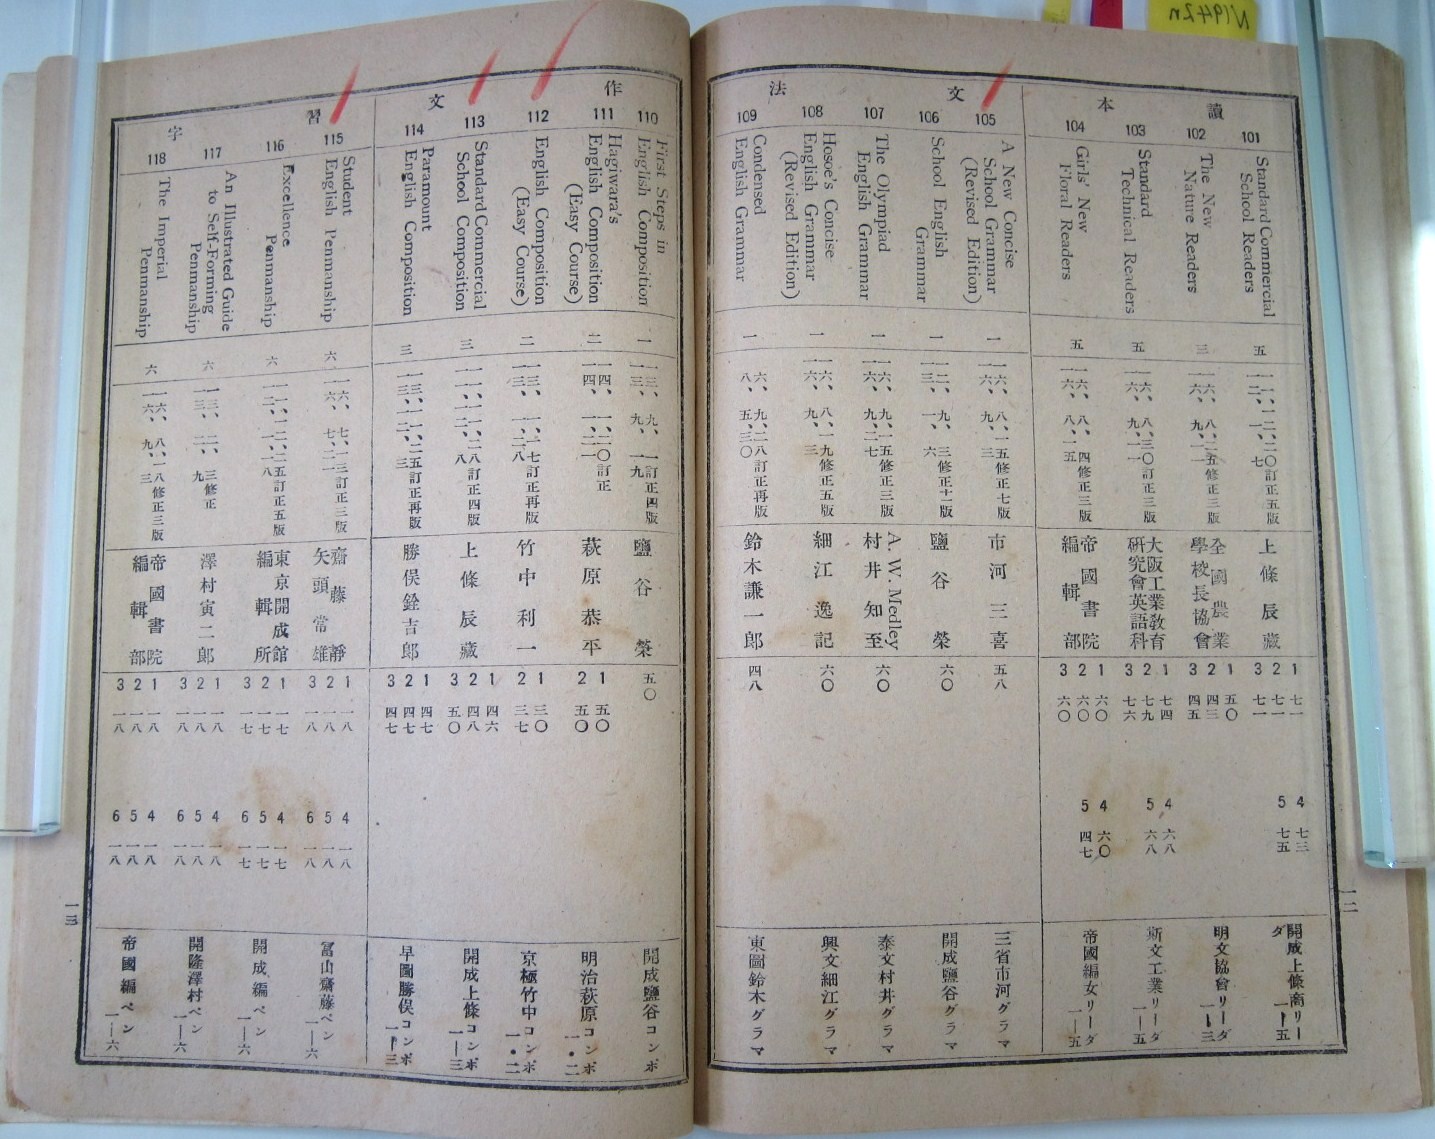 讀本
101
Standard Commercial
School Readers
五
訂正五版
上條辰藏
1 七一
2 七一
3 七一
4 七三
5 七五
開成上條商リーダ
一―五
102
The New
Nature Readers
三
全國農業
學校長協會
1 五〇
2 四三
3 四五
明文協會リーダ
一―三
103
Standard
Technical Readers
五
訂正三版
大阪工業教育
研究會英語科
1 七四
2 七九
3 七六
4 六八
5 六八
斯文工業リーダ
一―五
104
Girls' New
Floral Readers
五
修正三版
帝國書院
編輯部
1 六〇
2 六〇
3 六〇
4 六〇
5 四七
帝國編女リーダ
一―五
文法
105
A New Concise
School Grammar
(Revised Edition)
一
修正七版
市河三喜
五八
三省市河グラマ
106
School English
Grammar
一
鹽谷榮
六〇
開成鹽谷グラマ
107
The Olympiad
English Grammar
一
修正三版
A. W. Medley
村井知至
六〇
泰文村井グラマ
108
Hosoe's Concise
English Grammar
(Revised Edition)
一
修正五版
細江逸記
六〇
興文細江グラマ
109
Condensed
English Grammar
一
訂正再版
鈴木謙一郎
四八
東圖鈴木グラマ
一二
作文
110
First Steps in
English Composition
一
訂正四版
鹽谷榮
五〇
開成鹽谷コンポ
111
Hagiwara's
English Composition
(Easy Course)
二
訂正
萩原恭平
1 五〇
2 五〇
明治萩原コンポ
一・二
112
English Composition
(Easy Course)
二
訂正再版
竹中利一
1 三〇
2 三七
京極竹中コンポ
一・二
113
Standard Commercial
School Composition
三
訂正四版
上條辰藏
1 四六
2 四八
3 五〇
開成上條コンポ
一―三
114
Paramount
English Composition
三
訂正再版
勝俣銓吉郎
1 四七
2 四七
3 四七
早圖勝俣コンポ
一―三
習字
115
Student
English Penmanship
六
訂正三版
齋藤靜
矢頭常雄
1 一八
2 一八
3 一八
4 一八
5 一八
6 一八
冨山齋藤ペン
一―六
116
Excellence
Penmanship
六
訂正五版
東京開成館
編輯所
1 一七
2 一七
3 一七
4 一七
5 一七
6 一七
開成編ペン
一―六
117
An Illustrated Guide
to Self-Forming
Penmanship
六
修正
澤村寅二郎
1 一八
2 一八
3 一八
4 一八
5 一八
6 一八
開隆澤村ペン
一―六
118
The Imperial
Penmanship
六
修正三版
帝國書院
編輯部
1 一八
2 一八
3 一八
4 一八
5 一八
6 一八
帝國編ペン
一―六
一三